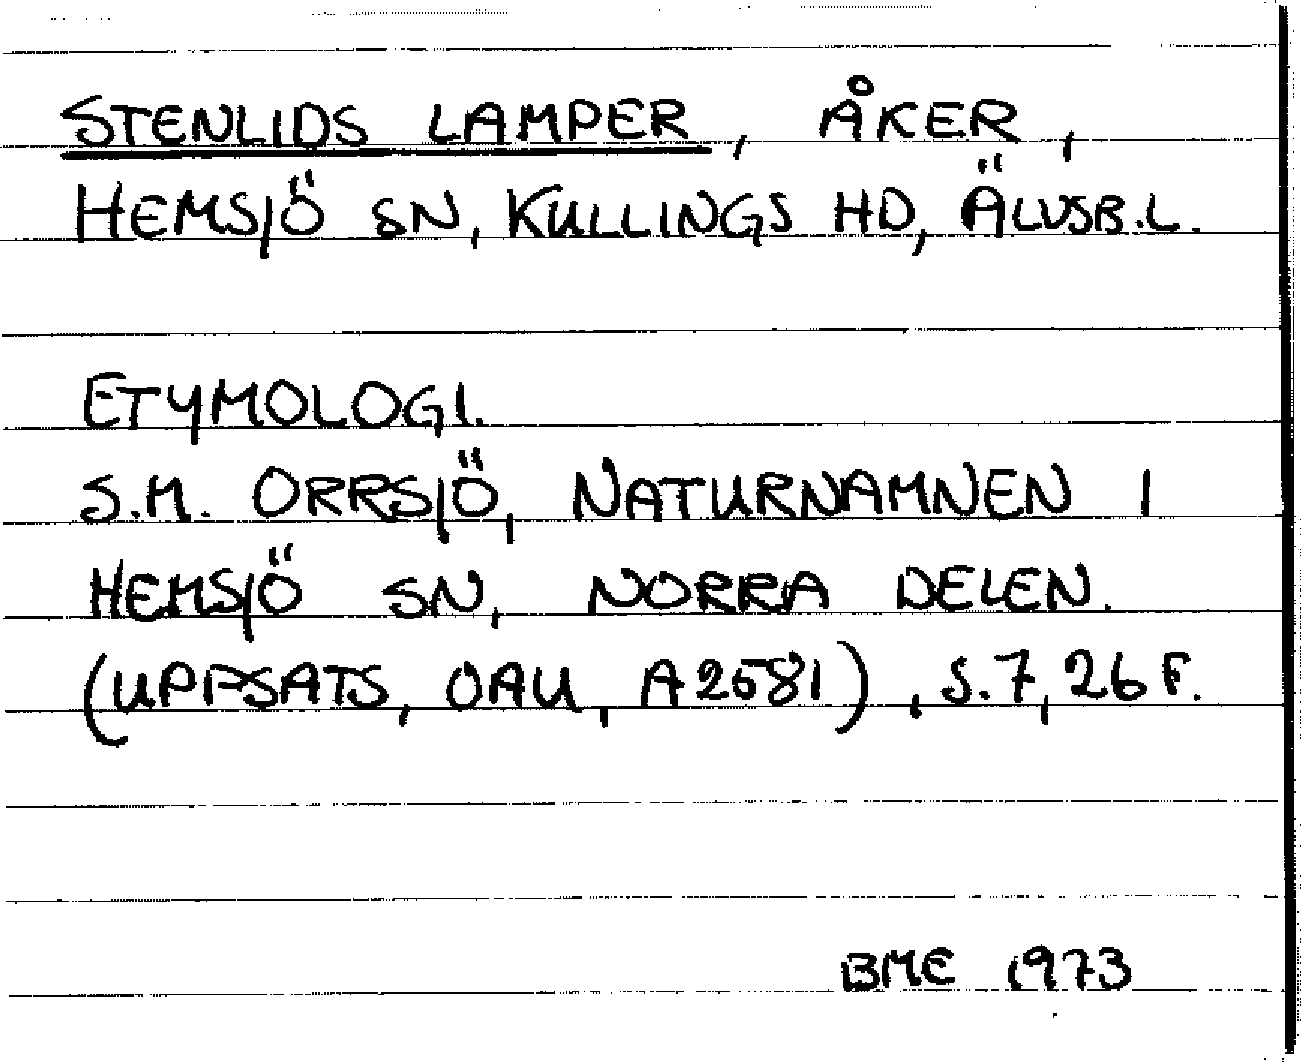 STENLIDS LAMPER, ÅKER,
HEMSJÖ SN, KULLINGS HD, ÄLVSB.L.
ETYMOLOGI.
S.M. ORRSJÖ, NATURNAMNEN I
HEMSJÖ SN, NORRA DELEN.
(UPPSATS, OAU, A2581), S.7, 26 F.
BME 1973